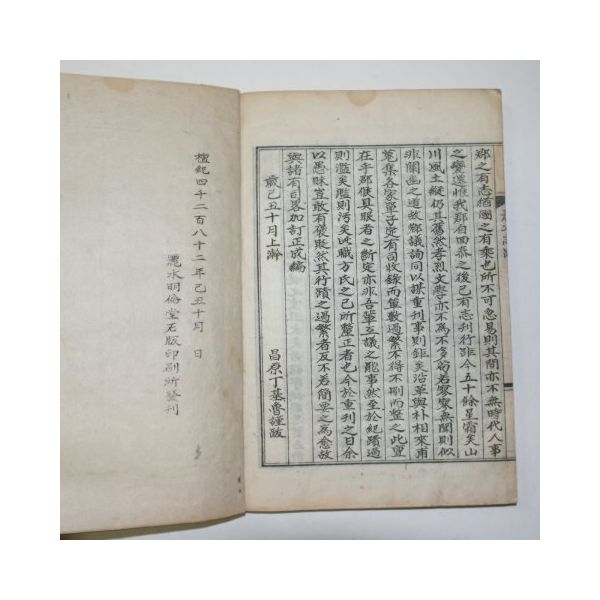 郷之有志猶國之有乘也所不可忽易則其間亦不無時代人事
之變遷惟我郡自回泰之後己有志刊行距今五十餘星霜矣山
川風土縱仍其舊然孝烈文學亦不為不多矣若寥寥無聞則似
非闡幽之道故鄉議詢同以謀重刊事則鉅矣沿革與朴相來甫
蒐集各家單子定有司收錄而單數過繁不得不刪而整之此豈
在乎郡俱具眼者之斷定亦非吾輩互議之能事然至於紀蹟過
則濫矣濫則汚矣此職方氏之己所釐正者也今於重刊之日余
以愚昧豈敢有褒貶然其行蹟之過繁者反不若簡要之為愈故
與諸有司畧加訂正成編
歲己丑十月上澣
昌原丁基魯謹跋
檀紀四千二百八十二年己丑十月 日
麗水明倫堂石版印刷所發刊